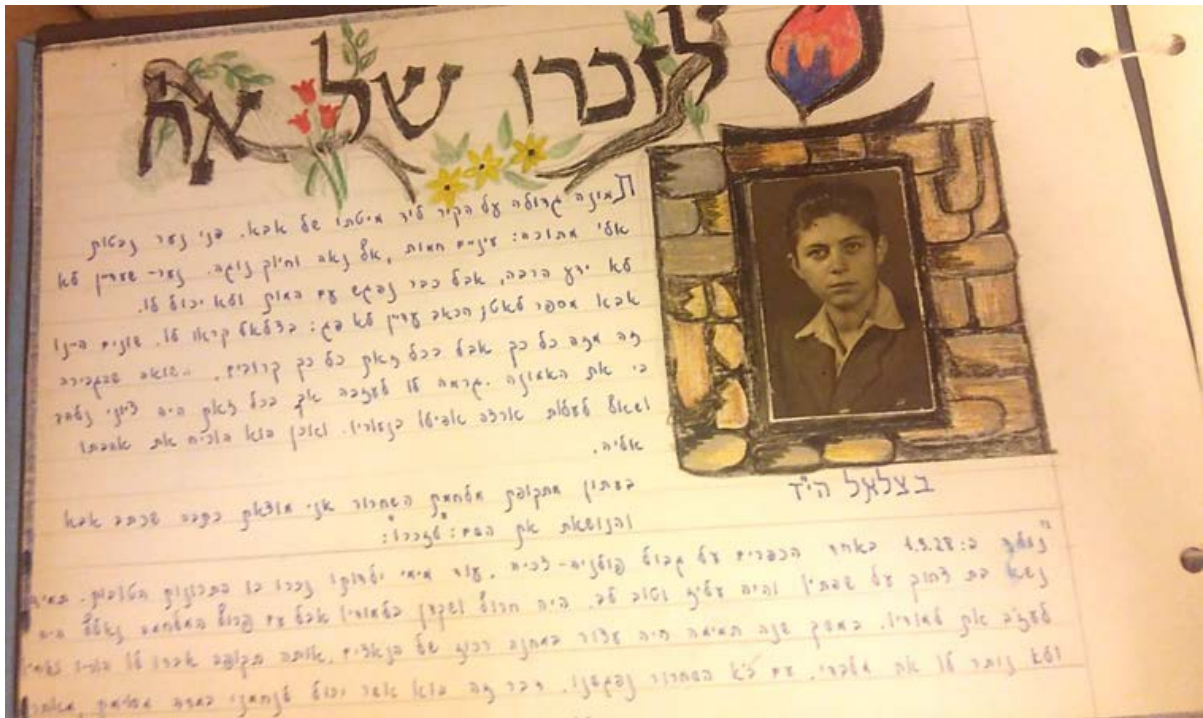 לזכרו של אח
תמונה גדולה על הקיר ליד מיטתו של אבא. פני נער נבטות
אלי מתוכה: עיניים חמות, אף נאה וחיוך נוגה. נער- שעדיין לא
לא ידע הרבה, אבל כבר נפגש עם המוות ולא יכול לו.
אבא מספר לאטו הכאב עדיין לא פג: בצלאל קראו לו. שונים היינו
זה מזה כל כך אבל בכל זאת כל כך קרובים. השואה שהגבירה
בי את האמונה. גרמה לו לעזבה אך בכל זאת היה ציוני נלהב
ושאף לעלות ארצה אפילו בנעוריו. ואכן הוא הוכיח את אהבתו
אליה.
בצלאל הי"ד
בעתון מתקופת מלחמת השחרור אני מוצאת כתבה שכתב אבא
והנושאת את השם: "לזכרו":
"נולד ב: 1.9.28 באחד הכפרים על גבול פולניה-
עוד מימי ילדותו נכרו בו התכונות הטובות. תמיד
נשא בת צחוק על שפתיו והיה עליז וטוב לב. היה חרוץ ושקדן בלמודיו אבל עם פרוץ המלחמה נאלץ היה
לעזוב את למודיו. במשך שנה תמימה היה עצור במחנה רכוז של הנאצים, אותה תקופה אבדו לו הוריו
ולא נותר לו את מלבדי. עם בא השחרור נפגשנו. דבר זה הוא אשר יכול לנחמני במדה